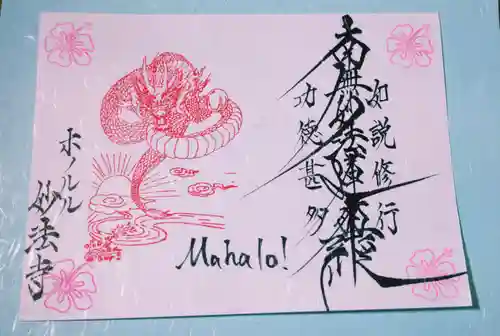 如説修行
南無妙法蓮華経
功徳甚多
Mahalo!
ホノルル
妙法寺